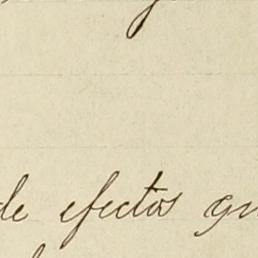 de efectos